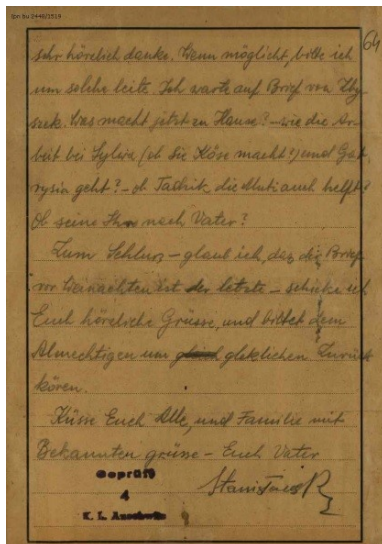 ipn bu 2448/1519
64
sehr hörzlich danke. Wenn möglicht, bitte ich
um solche leite. Ich warte auf Brief von Zby-
szek. Was macht jetzt zu Hause? – wie die Ar-
beit bei Sylwia (ob Sie Köse macht?) und Ga-
rysia geht? – ob Tadzik die Muti auch helft?
Ob seine nach Vater?
Zum Schluss – glaub ich, daz die Brief
vor Weinachten ist der letzte – schicke ich
Euch hörzliche Grüsse, und bittet dem
Almechtigen um gleich gliklichen Zurück
kören.
Küsse Euch Alle, und Familie mit
Bekannten grüsse – Euch Vater
Stanisław R
Geprüft
4
K. L. Auschwitz